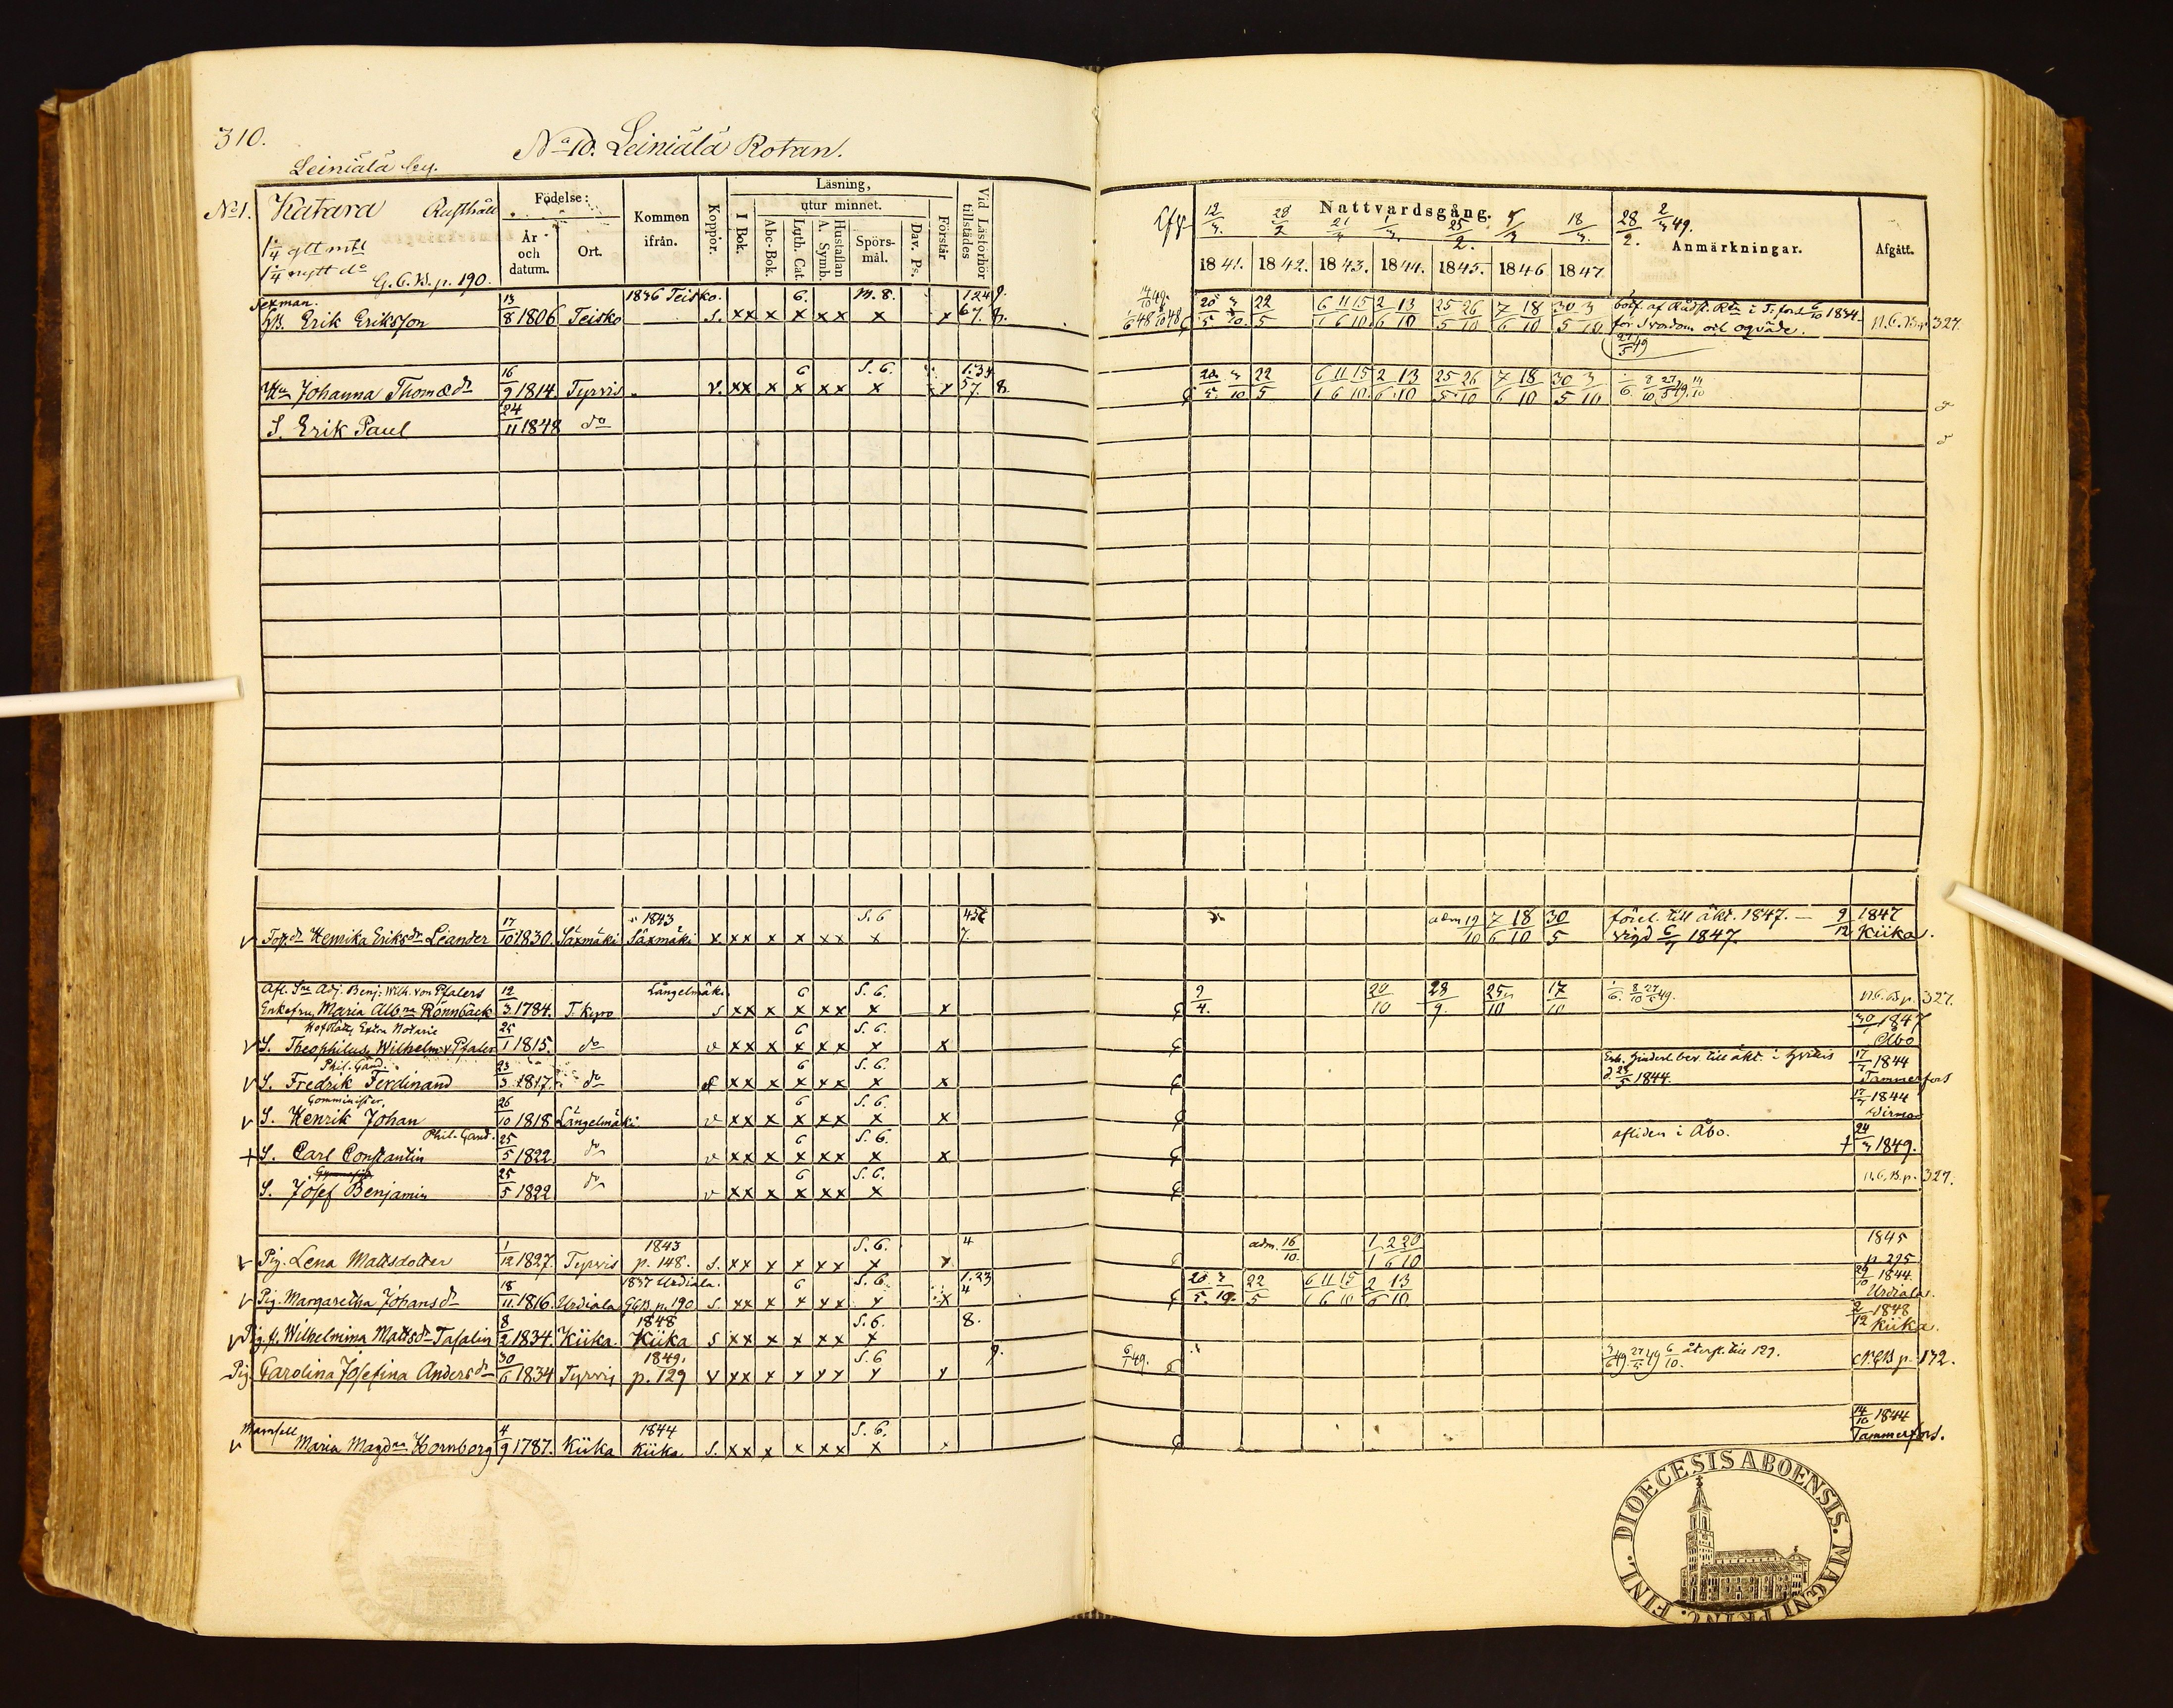 310.
No 10. Leiniälä Rotan.
Leiniälä by.
No 1. Katara Rusthåll
1/4 glt mtl
1/4 nytt do
G.C.B. p. 190.
Födelse:
År och datum.
Ort.
Kommen ifrån.
Koppor.
Läsning,
utur minnet.
I Bok.
Abc-Bok.
Luth. Cat.
Hustaflan A. Symb.
Spörsmål.
Dav. Ps.
Förstår
Vid Läsförhör tillstädes
Nattvardsgång.
12/3. 28/2 21/3 25/2. 18/3. 28/2. 2/3 49.
1841. 1842. 1843. 1844. 1845. 1846 1847
Anmärkningar.
Afgått.
Sexman. 13 1836 Teisko. 6. M. 8.
Erik Eriksson 8 1806 Teisko s. xx x x xx x x 67. 8.
20/5 3/10 22/5 6 11 15/1 6 10 2 13/6 10 25 26/5 10 7 18/6 10 30 3/5 10
6/10 1834
för svordom och oqväde.
N.C.B. p 327.
16 6 S. 6.
Hu Johanna Thomædr 9 1814. Tyrvis v. xx x x xx x x 57. 8.
20/5 3/10 22/5 6 11 15/1 6 10 2 13/6 10 25 26/5 10 7 18/6 10 30 3/5 10
24
S. Erik Paul 11 1848 do
17 1843 S. 6
Henrika Eriksdr Leander 10 1830. Säxmäki Säxmäki x xx x x xx x 7.
adm 19/10 7 18/6 10 30/5
förel. till äkt. 1847. — 9/12 1847
vigd 6/7 1847. Kiika.
Afl. Adj. Benj. Wilh. von Pfalers 12 Längelmäki 6 S. 6.
Enkefru Maria Albna Rönnbäck 3 1784. T. Kyro s xx x x xx x x
9/4. 20/10 28/9. 25/10 17/10 N.C.B p. 327.
Extra Notarie 25 6 S. 6.
S. Theophilus Wilhelm v Pfaler 1 1815. do v xx x x xx x x
30/ 1847
Åbo
Phil. Cand. 23 6 S. 6.
S. Fredrik Ferdinand 3 1817. do xx x x xx x x
till äkt. i Tyrvis
d. 28/5 1844.
17/7 1844
Tammerfors
Comminister. 26 6 S. 6.
S. Henrik Johan 10 1818 Längelmäki v xx x x xx x x
17/7 1844
Phil. Cand. 25 6 S. 6.
+ S. Carl Constantin 5 1822. do v xx x x xx x x
afliden i Åbo.
24/3 1849.
25 6 S. 6.
S. Josef Benjamin 5 1822 do v xx x x xx x
N.C.B. p. 327.
1 1843 S. 6. 4
Pig. Lena Mattsdotter 12 1827. Tyrvis p. 148. s. xx x x xx x x
adm. 16/10. 1 2 20/1 6 10
1845
p. 295
18 1837 Urdiala. 6 S. 6. 1. 23 4
Pig. Margaretha Johansdr 11. 1816. Urdiala GCB p. 190 s. xx x x xx x x
20 3/5. 10. 22/5 6 11 15/1 6 10 2 13/6 10
29/10 1844.
Urdiala.
8 1848 S. 6. 8.
Wilhelmina Mattsdr Tasalin 2 1834. Kiika Kiika s xx x x xx x
2/12 1848
Kiika.
30 1849. S. 6 9.
Pig. Carolina Josefina Andersdr 6 1834 Tyrvis p. 129 v xx x x xx x x
6/10. återfl. till 129.
NCB p. 132.
4 1844 S. 6.
Mamsell Maria Magdna Hornborg 9 1787. Kiika Kiika s. xx x x xx x x
14/10 1844
Tammerfors.
DIOECESIS ABOENSIS. MAGNI PRINC. FINL.